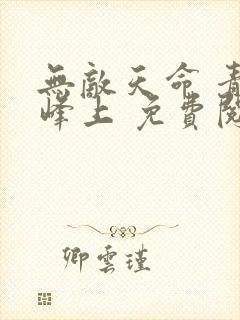 無敵天命 青
峰上 免費閱
卿雲瑾